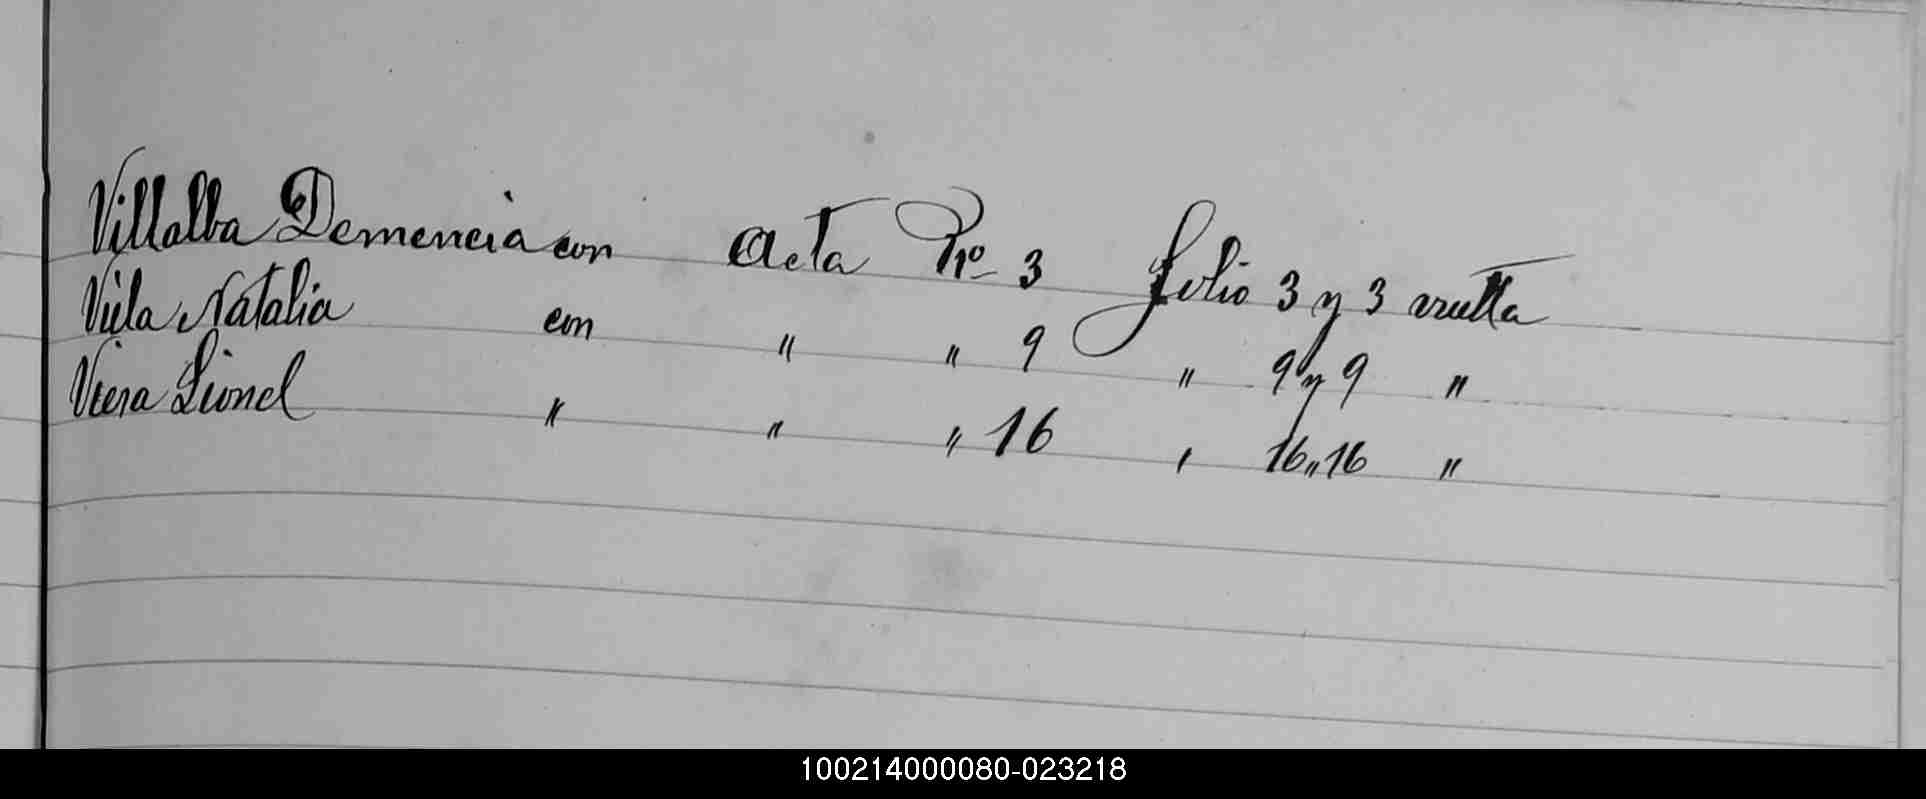 Villalba Demencia con acta Nº 3 folio 3 y 3 vuelta
Viila Natalia con " " 9 " 9 y 9 "
Viera Lionel " " " 16 " 16 " 16 "
100214000080-023218